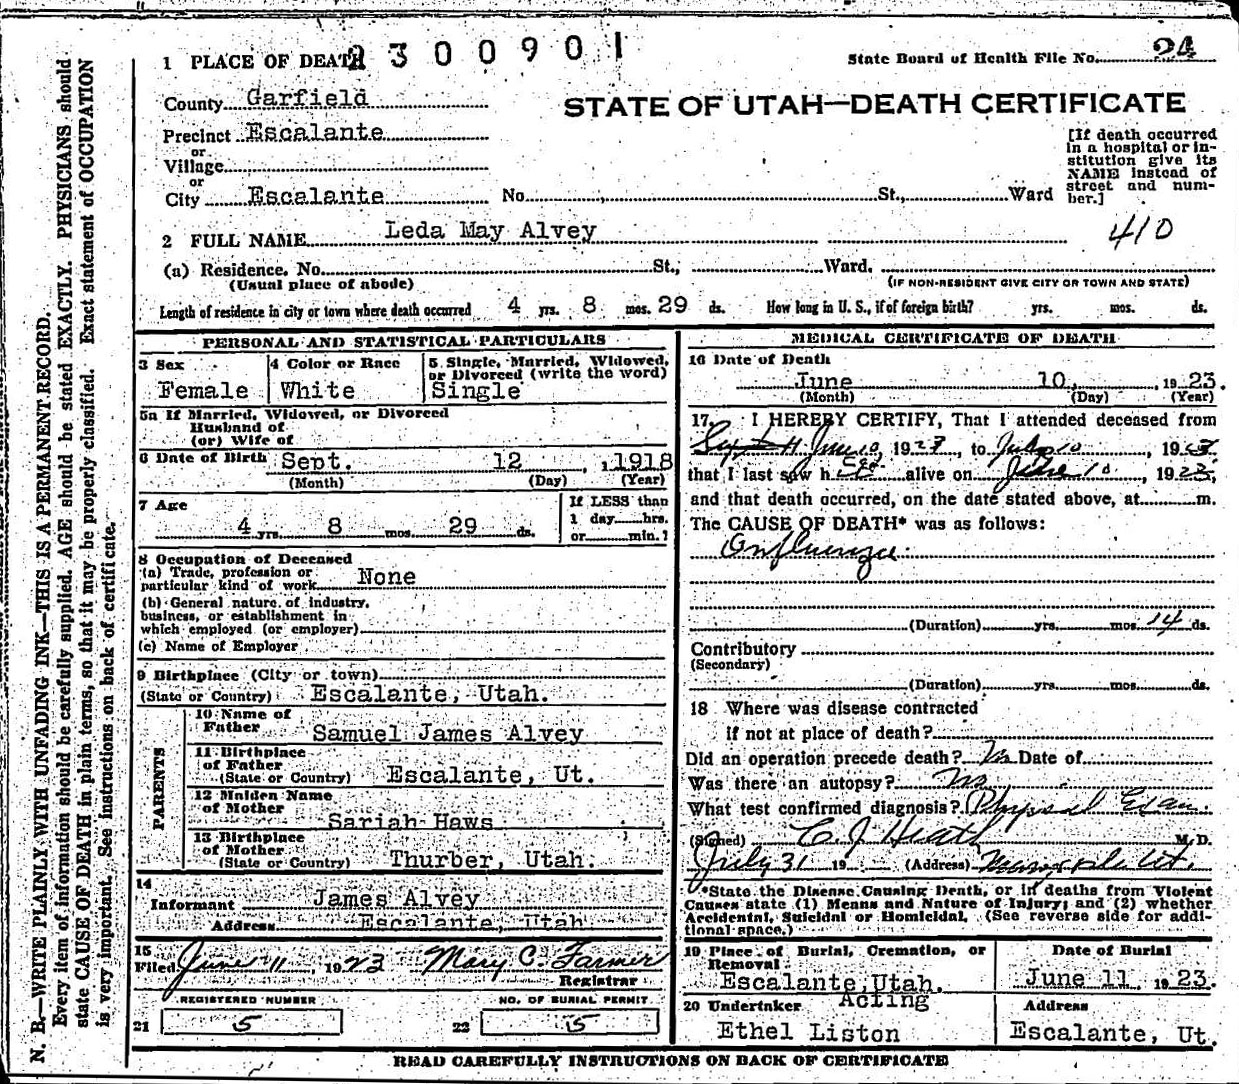 2300901
State Board of Health File No. 24
1 PLACE OF DEATH
County Garfield
STATE OF UTAH—DEATH CERTIFICATE
Precinct Escalante
or
Village
or
City Escalante No. St., Ward
[If death occurred
in a hospital or in-
stitution give its
NAME instead of
street and num-
ber.]
2 FULL NAME Leda May Alvey
410
(a) Residence. No. St., Ward.
(Usual place of abode)
(IF NON-RESIDENT GIVE CITY OR TOWN AND STATE)
Length of residence in city or town where death occurred 4 yrs. 8 mos. 29 ds. How long in U. S., if of foreign birth? yrs. mos. ds.
PERSONAL AND STATISTICAL PARTICULARS
3 Sex
Female
4 Color or Race
White
5 Single, Married, Widowed,
or Divorced (write the word)
Single
5a If Married, Widowed, or Divorced
Husband of
(or) Wife of
6 Date of Birth Sept. 12, 1918
(Month) (Day) (Year)
7 Age
4 yrs. 8 mos. 29 ds.
If LESS than
1 day hrs.
or min.?
8 Occupation of Deceased
(a) Trade, profession or
particular kind of work None
(b) General nature of industry,
business, or establishment in
which employed (or employer)
(c) Name of Employer
9 Birthplace (City or town)
(State or Country) Escalante, Utah.
PARENTS
10 Name of
Father Samuel James Alvey
11 Birthplace
of Father
(State or Country) Escalante, Ut.
12 Maiden Name
of Mother
Sariah Haws
13 Birthplace
of Mother
(State or Country) Thurber, Utah.
14
Informant James Alvey
Address Escalante, Utah
15
Filed June 11, 1923 Mary C. Farmer
Registrar
REGISTERED NUMBER
21 5
NO. OF BURIAL PERMIT
22 5
MEDICAL CERTIFICATE OF DEATH
16 Date of Death
June 10, 1923.
(Month) (Day) (Year)
17. I HEREBY CERTIFY, That I attended deceased from
June 10, 1923, to 10, 1923
that I last saw her alive on June 10, 1923,
and that death occurred, on the date stated above, at m.
The CAUSE OF DEATH* was as follows:
Influenza.
(Duration) yrs. mos. 14 ds.
Contributory
(Secondary)
(Duration) yrs. mos. ds.
18 Where was disease contracted
if not at place of death?
Did an operation precede death? No Date of
Was there an autopsy? No
What test confirmed diagnosis? Physical Exam.
(Signed) C. J. Heath M. D.
July 31 19 (Address) Ut.
*State the Disease Causing Death, or in deaths from Violent
Causes state (1) Means and Nature of Injury; and (2) whether
Accidental, Suicidal or Homicidal. (See reverse side for addi-
tional space.)
19 Place of Burial, Cremation, or
Removal
Escalante, Utah.
Date of Burial
June 11 1923.
20 Undertaker Acting
Ethel Liston
Address
Escalante, Ut.
READ CAREFULLY INSTRUCTIONS ON BACK OF CERTIFICATE
N. B.—WRITE PLAINLY WITH UNFADING INK—THIS IS A PERMANENT RECORD.
Every item of information should be carefully supplied. AGE should be stated EXACTLY. PHYSICIANS should
state CAUSE OF DEATH in plain terms, so that it may be properly classified. Exact statement of OCCUPATION
is very important. See instructions on back of certificate.